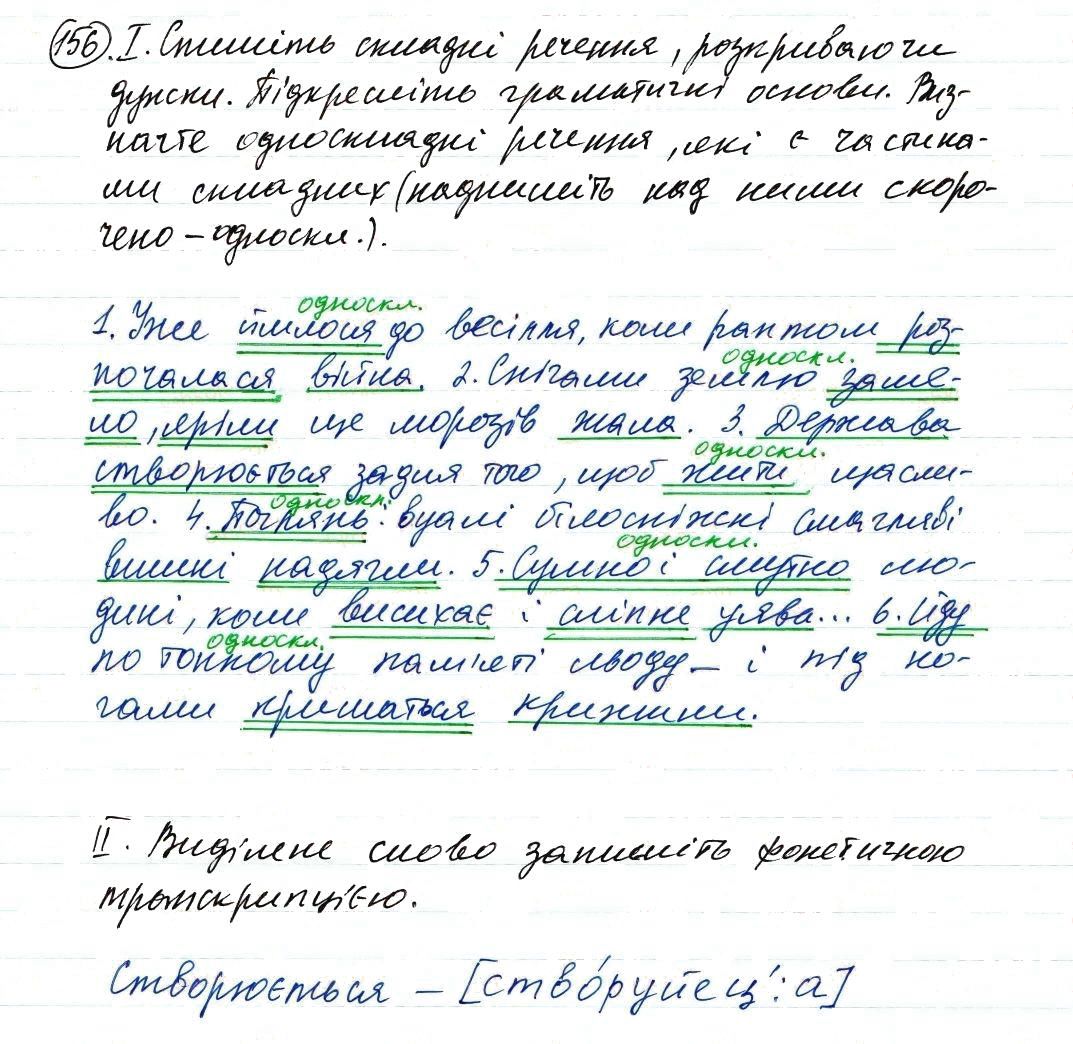 156. І. Спишіть складні речення, розкриваючи
дужки. Підкресліть граматичні основи. Виз-
начте односкладні речення, які є частина-
ми складних (надпишіть над ними скоро-
чено – односкл.).
односкл.
1. Уже йшлося до весілля, коли раптом роз-
односкл.
почалася війна. 2. Снігами землю заме-
ло, яріли ще морозів жала. 3. Держава
односкл.
створюється задля того, щоб жити щасли-
односкл.
во. 4. Поглянь: вуалі білосніжні смагляві
односкл.
вишні надягли. 5. Сумно і смутно лю-
дині, коли висихає і сліпне уява... 6. Іду
односкл.
по тонкому пам'яті льоду – і під но-
гами кришаться крижини.
ІІ. Виділене слово запишіть фонетичною
транскрипцією.
Створюється – [ство́руйец′:а]